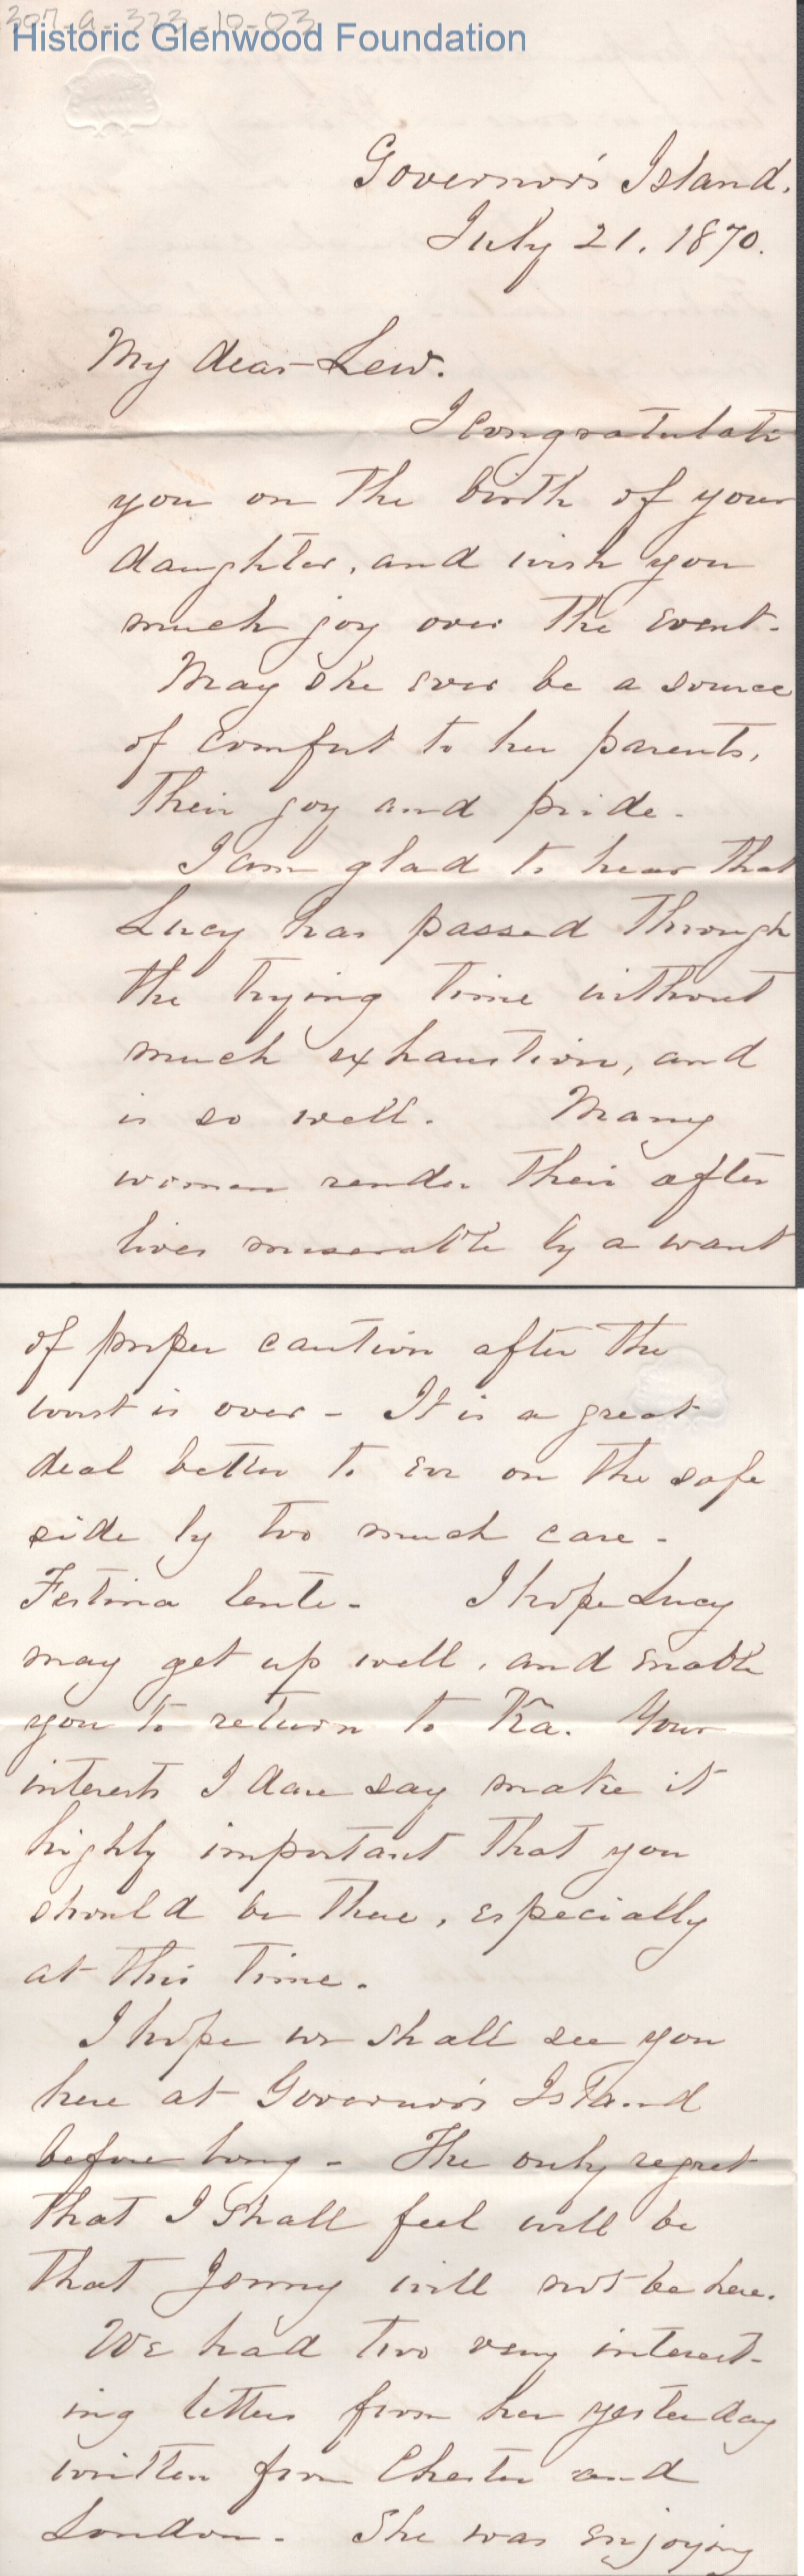 307-a-323-10-03
Historic Glenwood Foundation
Governor's Island.
July 21. 1870.
My dear Lew.
I congratulate
you on the birth of your
daughter, and wish you
much joy over the event.
May she ever be a source
of comfort to her parents,
their joy and pride.
I am glad to hear that
Lucy has passed through
the trying time without
much exhaustion, and
is so well. Many
women render their after
lives miserable by a want
of proper caution after the
worst is over - It is a great
deal better to err on the safe
side by too much care.
Festina lente - I hope Lucy
may get up well, and enable
you to return to Ka. Your
interests I dare say make it
highly important that you
should be there, especially
at this time.
I hope we shall see you
here at Governor's Island
before long - The only regret
that I shall feel will be
that Jenny will not be here.
We had two very interest-
ing letters from her yesterday
written from Chester and
London - She was enjoying